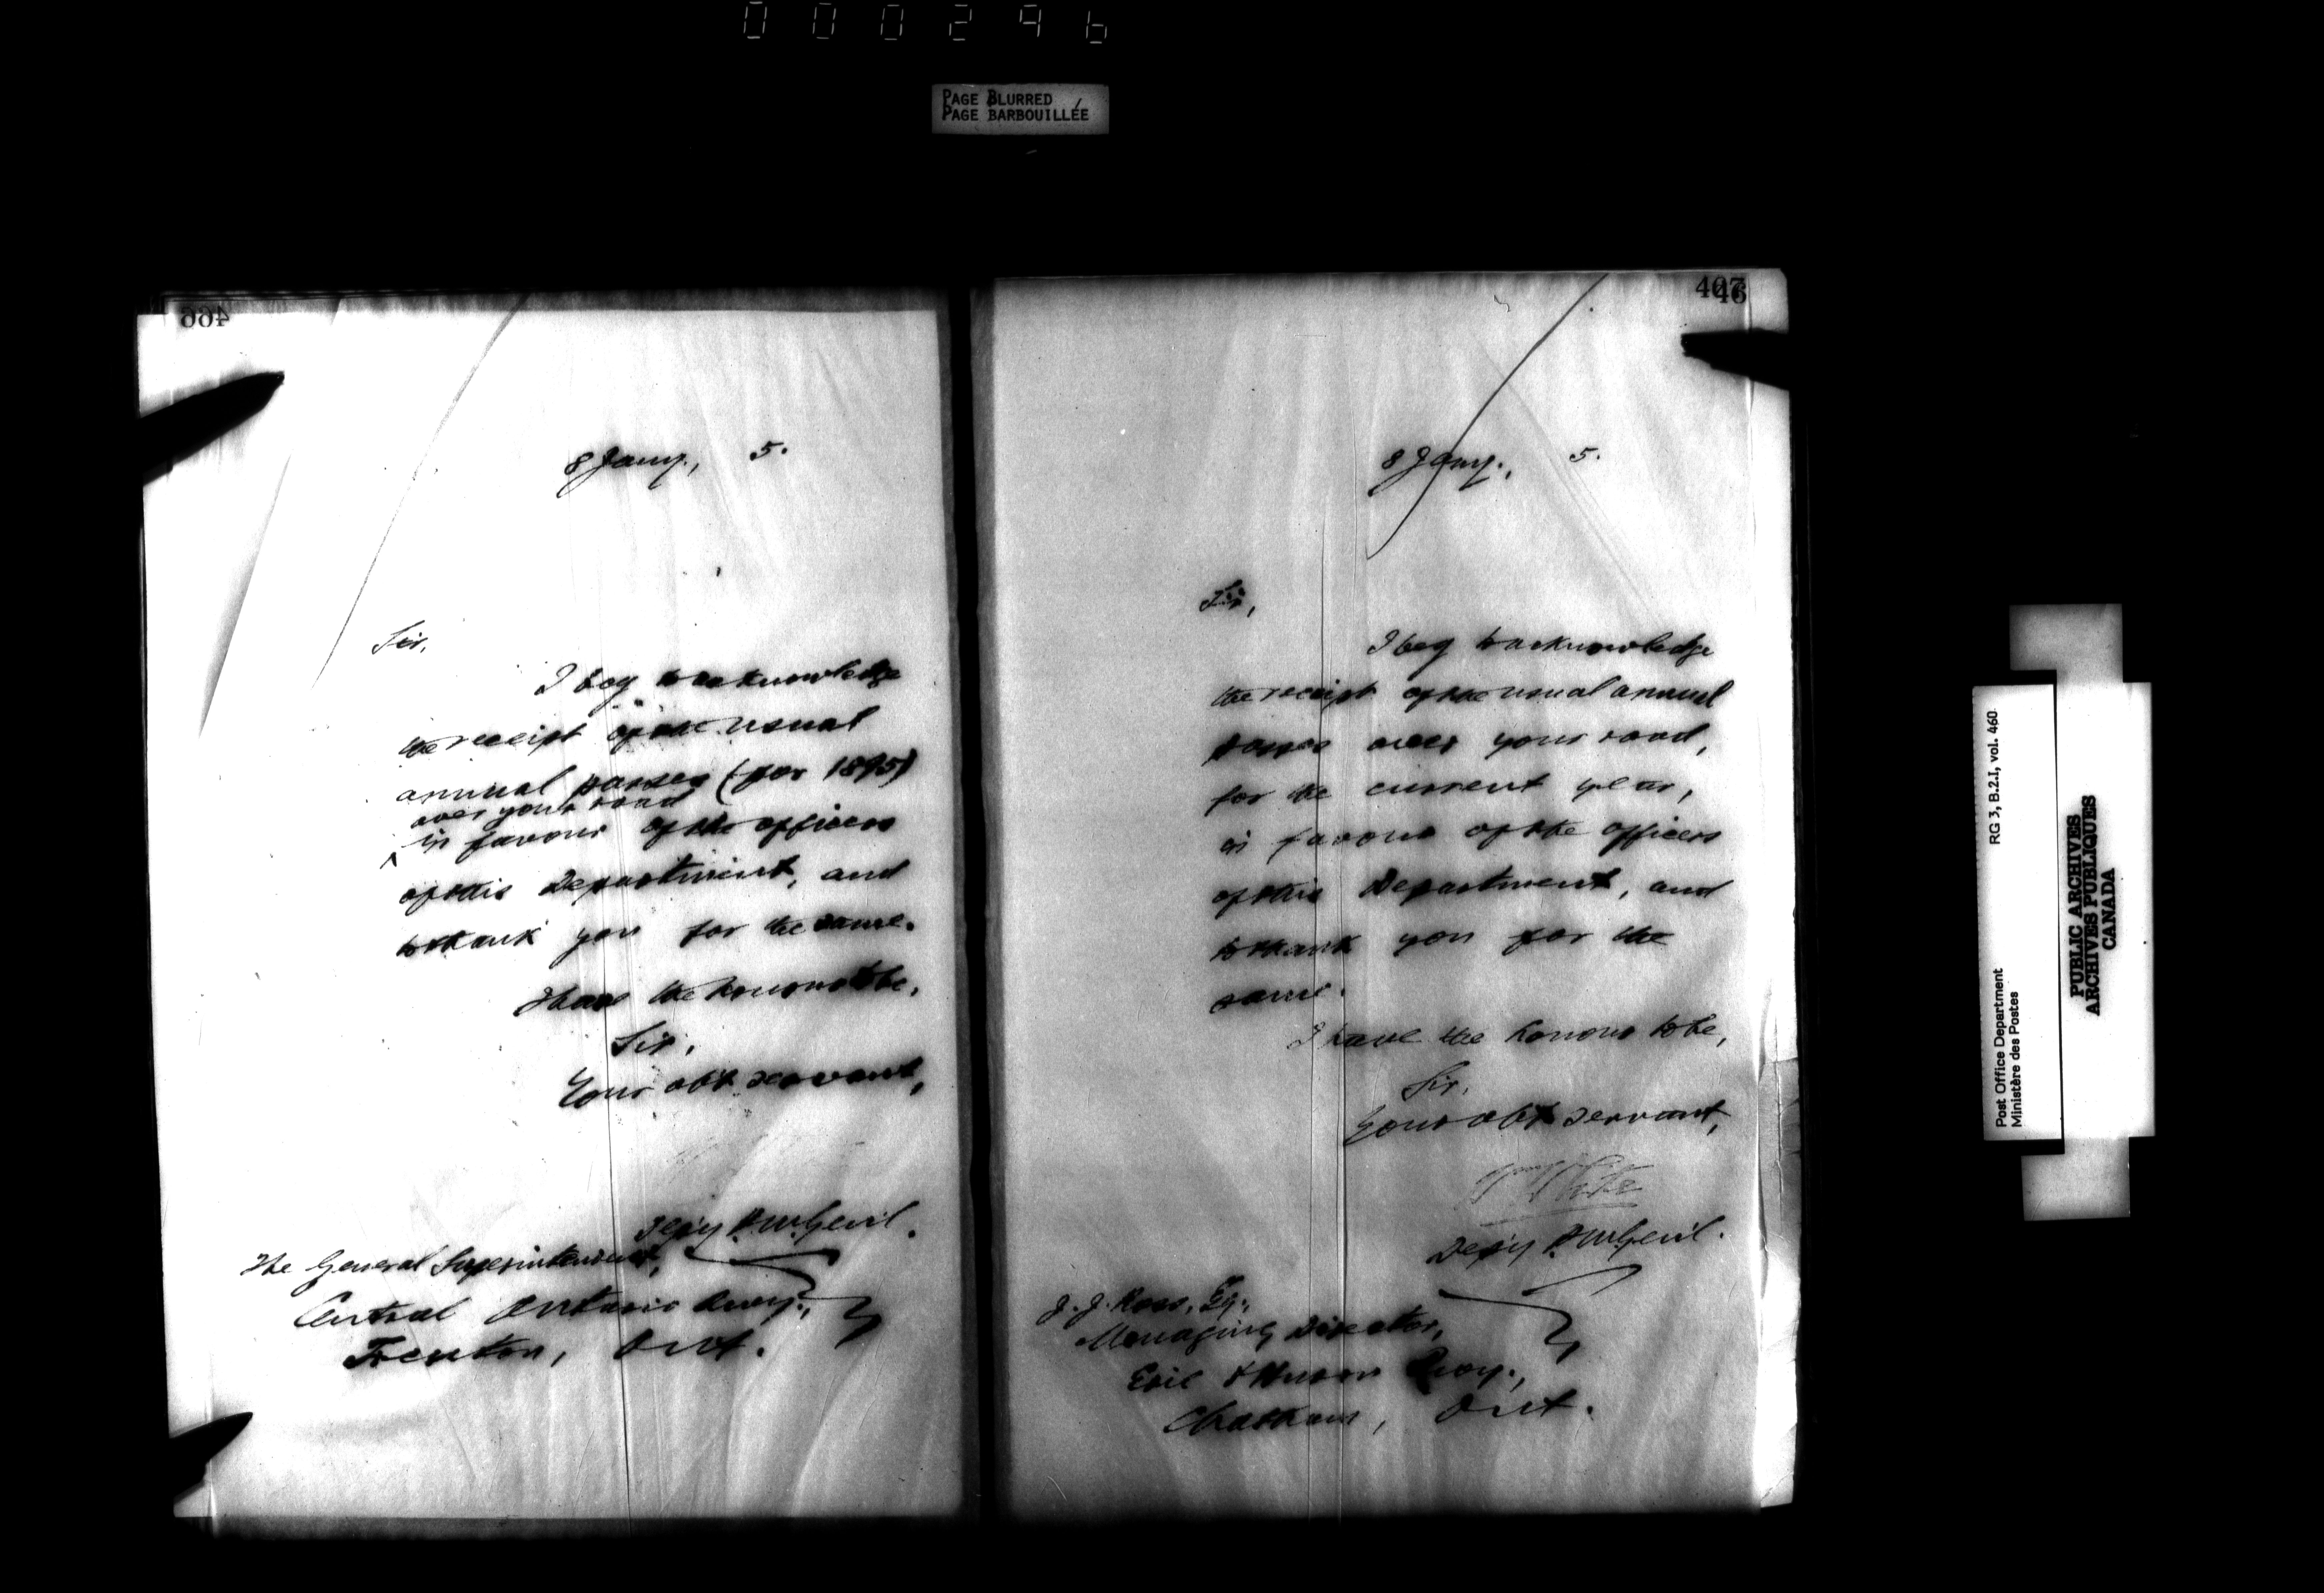 000296
PAGE BLURRED
PAGE BARBOUILLÉE
466
8 Jany., 5.
Sir,
I beg to acknowledge
the receipt of the usual
annual passes (for 1895)
over your road
^ in favour of the officers
of this Department, and
to thank you for the same.
I have the honour to be,
Sir,
Your obt servant,
Dep'y P.M. Gen'l.
The General Superintendent,
Central Ontario Rway.,
Trenton, Ont.
467
8 Jany., 5.
Sir,
I beg to acknowledge
the receipt of the usual annual
passes over your road,
for the current year,
in favour of the officers
of this Department, and
to thank you for the
same.
I have the honour to be,
Sir,
Your obt servant,
White
Dep'y P.M. Gen'l.
J. J. Ross, Esq.,
Managing Director,
Erie & Huron Rway.,
Chatham, Ont.
Post Office Department RG 3, B.2.I, vol. 460
Ministère des Postes
PUBLIC ARCHIVES
ARCHIVES PUBLIQUES
CANADA